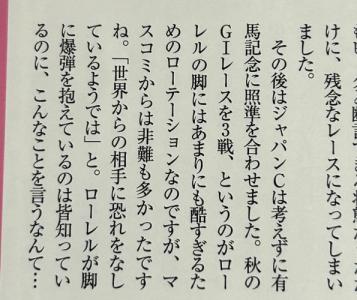 けに、残念なレースになってしまい
ました。
その後はジャパンCは考えずに有
馬記念に照準を合わせました。秋の
GIレースを3戦、というのがロー
レルの脚にはあまりにも酷すぎるた
めのローテーションなのですが、マ
スコミからは非難も多かったです
ね。「世界からの相手に恐れをなし
ているようでは」と。ローレルが脚
に爆弾を抱えているのは皆知ってい
るのに、こんなことを言うなんて…